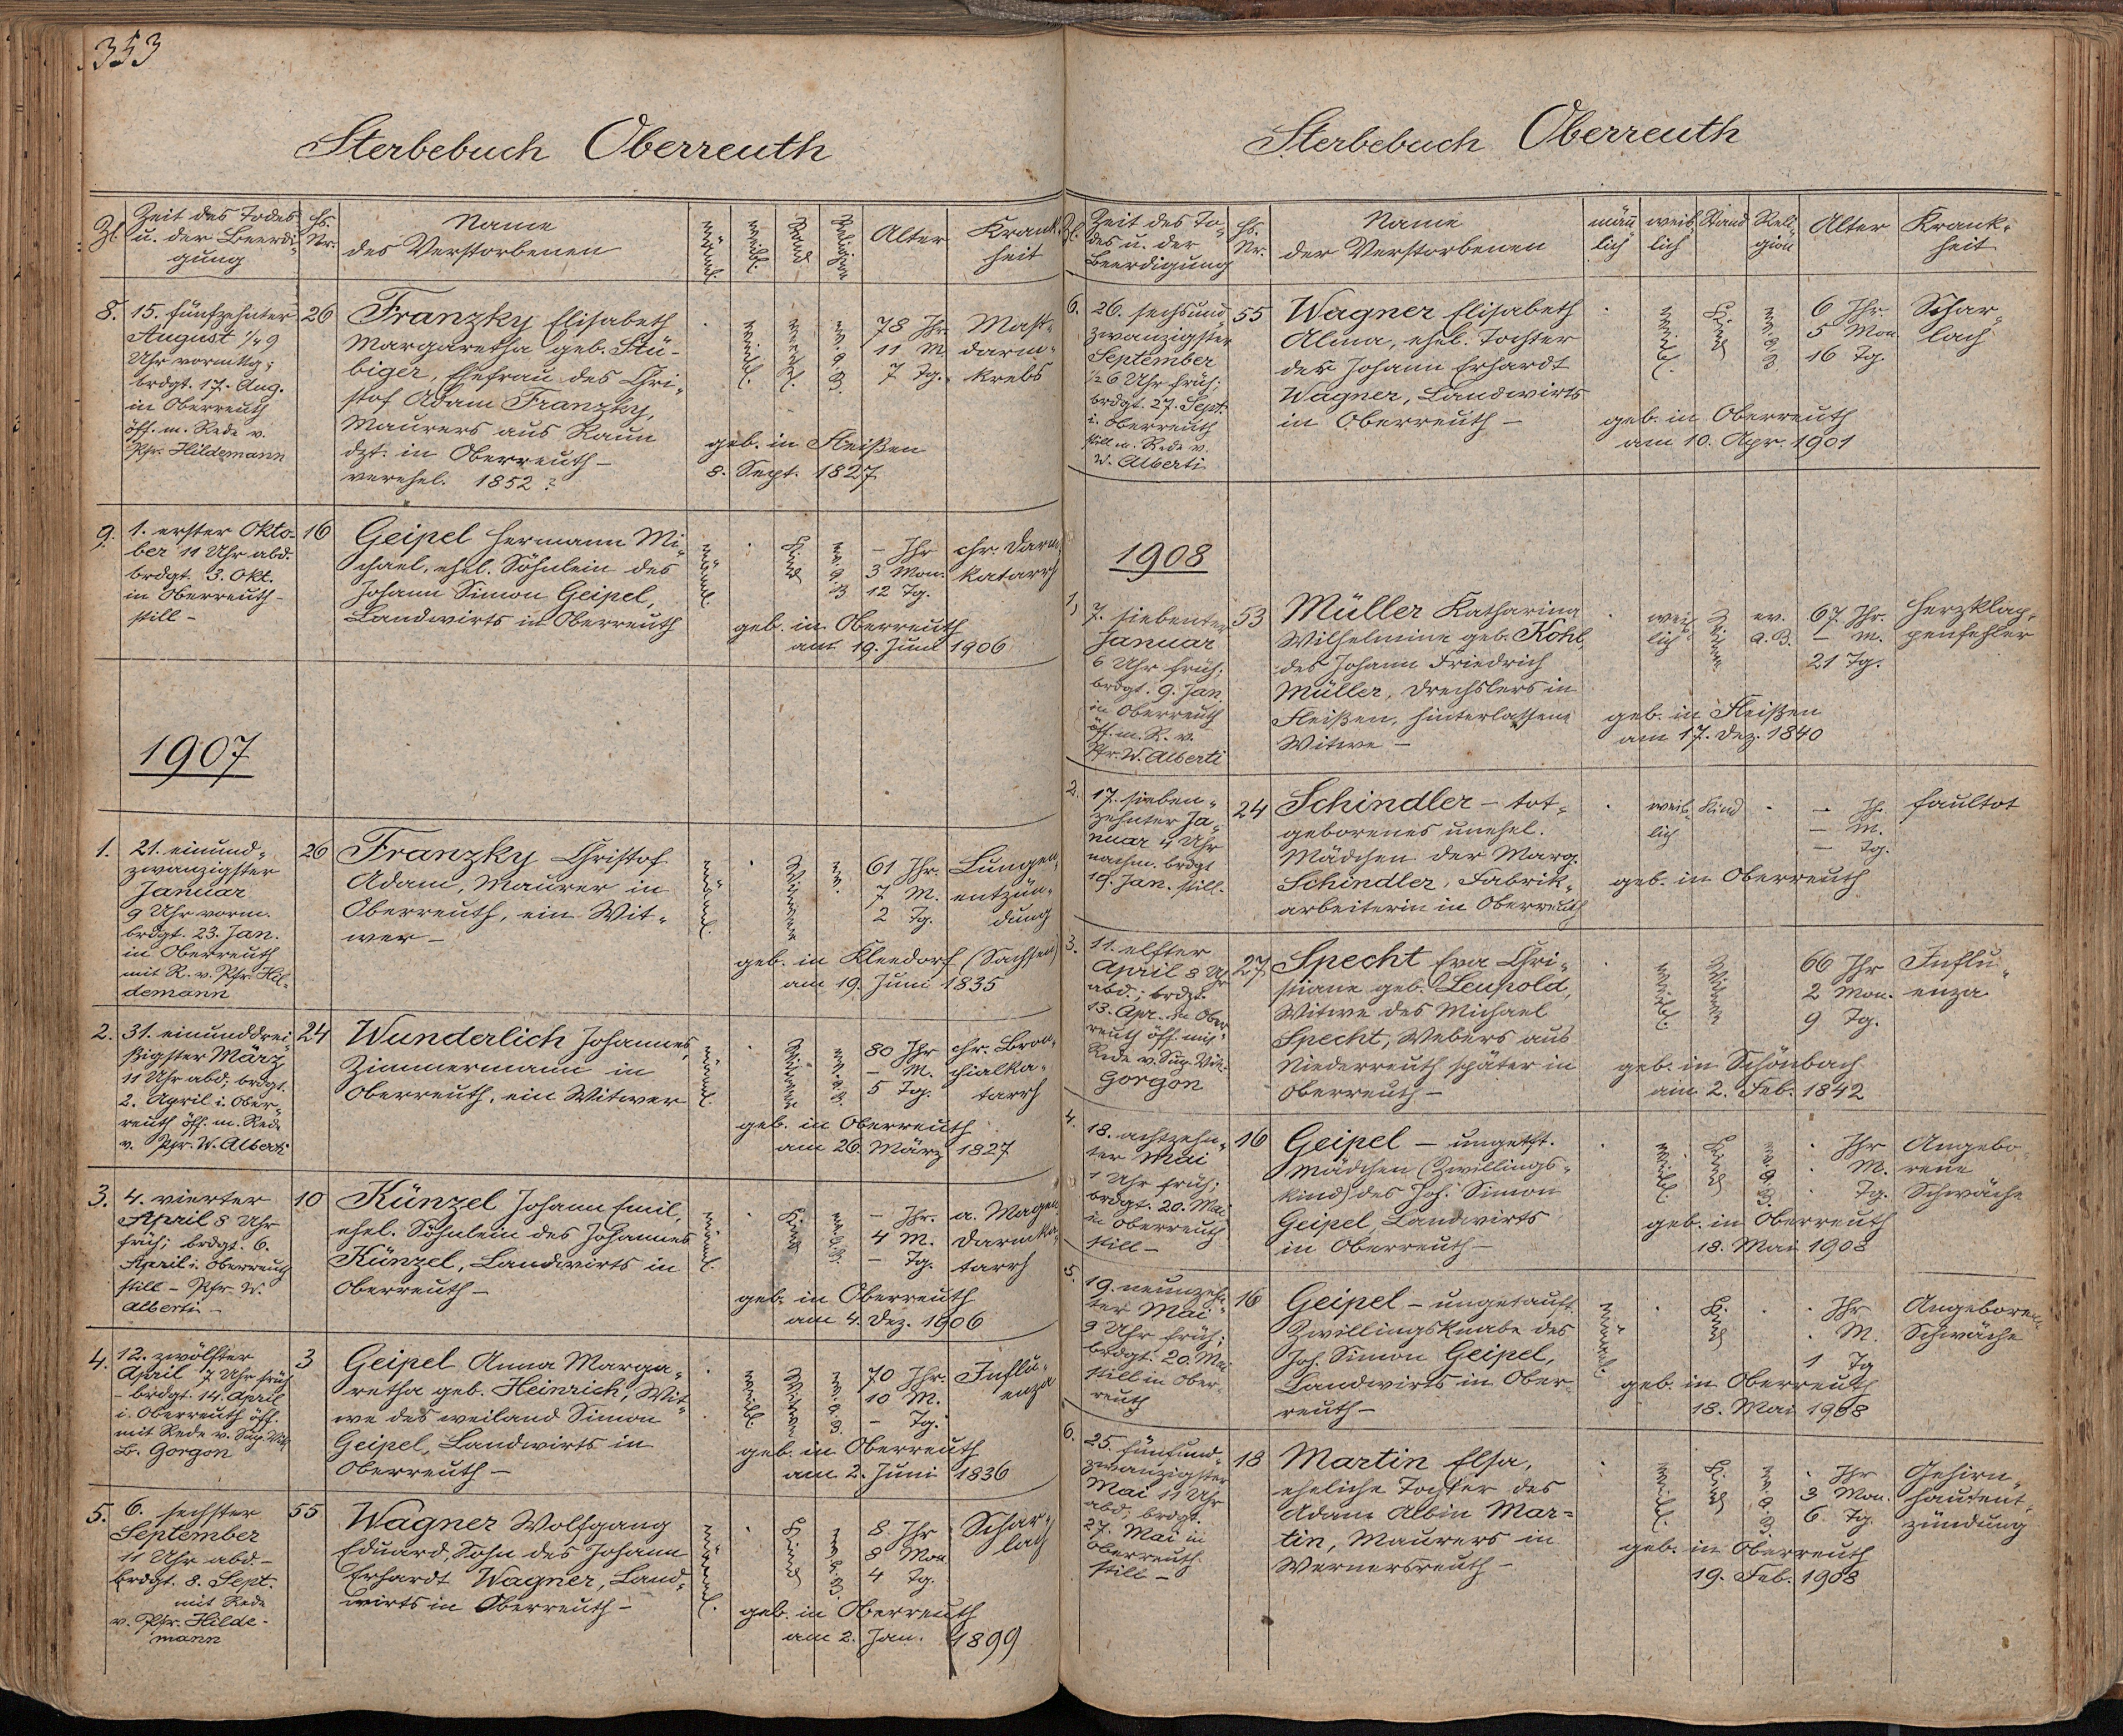 353
Sterbebuch Oberreuth
Zl.
Zeit des Todes
u. der Beerdi-
gung
Hs.
Nr.
Name
des Verstorbenen
männl.
weibl.
Stand
Religion
Alter
Krank-
heit
8.
15. fünfzehnter
August 1/4 9
Uhr vormttg;
brdgt. 17. Aug.
in Oberreuth
öff. m. Rede v.
Pfr. Hildemann
26
Franzky Elisabeth
Margaretha geb. Stü-
biger, Ehefrau des Chri-
stof Adam Franzky,
Maurers aus Raun
dzt. in Oberreuth –
verehel. 1852 ?
weibl.
verehl.
ev. A. B.
78 Jhr.
11 M.
7 Tg.
Mast-
darm-
krebs
geb. in Fleißen
8. Sept. 1827
9.
1. erster Okto-
ber 11 Uhr abd.
brdgt. 3. Okt.
in Oberreuth –
still –
16
Geipel Hermann Mi-
chael, ehel. Söhnlein des
Johann Simon Geipel,
Landwirts in Oberreuth
männl.
Kind
ev. A. B.
– Jhr
3 Mon.
12 Tg.
chr. Darm-
katarrh
geb. in Oberreuth
am 19. Juni 1906
1907
1.
21. einund-
zwanzigster
Januar
9 Uhr vorm.
brdgt. 23. Jan.
in Oberreuth
mit R. v. Pfr. Hil-
demann
26
Franzky Christof
Adam, Maurer in
Oberreuth, ein Wit-
wer –
männl.
Witwer
ev.
61 Jhr.
7 M.
2 Tg.
Lungen-
entzün-
dung
geb. in Kleedorf (Sachsen)
am 19. Juni 1835
2.
31. einunddrei-
ßigster März
11 Uhr abd; brdgt.
2. April i. Ober-
reuth öff. m. Rede
v. Pfr. W. Alberti
24
Wunderlich Johannes,
Zimmermann in
Oberreuth, ein Witwer
männl.
Witwer
ev. A. B.
80 Jhr
– M.
5 Tg.
chr. Bron-
chialka-
tarrh
geb. in Oberreuth
am 26. März 1827
3.
4. vierter
April 8 Uhr
früh; brdgt. 6.
April i. Oberreuth
still – Pfr. W.
Alberti –
10
Künzel Johann Emil,
ehel. Söhnlein des Johannes
Künzel, Landwirts in
Oberreuth –
männl.
Kind
ev. A. B.
– Jhr.
4 M.
– Tg.
a. Magen
Darmka-
tarrh
geb. in Oberreuth
am 4. Dez. 1906
4.
12. zwölfter
April 7 Uhr früh
– brdgt. 14. April
i. Oberreuth öff.
mit Rede v. Sup. Vik.
B. Gorgon
3
Geipel Anna Marga-
retha geb. Heinrich, Wit-
we des weiland Simon
Geipel, Landwirts in
Oberreuth –
weibl.
Witwe
ev. A. B.
70 Jhr.
10 M.
– Tg.
Influ-
enza
geb. in Oberreuth
am 2. Juni 1836
5.
6. sechster
September
11 Uhr abd. –
brdgt. 8. Sept.
mit Rede
v. Pfr. Hilde-
mann
55
Wagner Wolfgang
Eduard, Sohn des Johann
Erhardt Wagner, Land-
wirts in Oberreuth –
männl.
Kind
ev. A. B.
8 Jhr
8 Mon
4 Tg.
Schar-
lach
geb. in Oberreuth
am 2. Jan. 1899
Sterbebuch Oberreuth
Zl.
Zeit des To-
des u. der
Beerdigung
Hs.
Nr.
Name
der Verstorbenen
männ
lich
weib
lich
Stand
Reli-
gion
Alter
Krank-
heit
6.
26. sechsund
zwanzigster
September
1/2 6 Uhr früh;
brdgt. 27. Sept.
i. Oberreuth
still m. Rede v.
W. Alberti
55
Wagner Elisabeth
Alma, ehel. Tochter
des Johann Erhardt
Wagner, Landwirts
in Oberreuth –
weibl.
Kind
ev. A. B.
6 Jhr.
5 Mon
16 Tg.
Schar-
lach
geb. in Oberreuth
am 10. Apr. 1901
1908
1,
7. siebenter
Januar
6 Uhr früh;
brdgt. 9. Jan.
in Oberreuth
öff. m. R. v.
Pfr. W. Alberti
53
Müller Katharina
Wilhelmine geb. Kohl,
des Johann Friedrich
Müller, Drechslers in
Fleißen, hinterlassene
Witwe –
weib-
lich
Witwe
ev.
A. B.
67 Jhr.
– M.
21 Tg.
Herzklap-
penfehler
geb. in Fleißen
am 17. Dez. 1840
2.
17. sieben-
zehnter Ja-
nuar 4 Uhr
nachm. brdgt
19. Jan. still.
24
Schindler – tot-
geborenes unehel.
Mädchen der Marg.
Schindler, Fabrik-
arbeiterin in Oberreuth
weib-
lich
Kind
– Jh.
– M.
– Tg.
faultot
geb. in Oberreuth
3.
11. elfter
April 8 Uhr
abd.; brdgt.
13. Apr. in Ober-
reuth öff. mit
Rede v. Sup. Vik.
Gorgon
27
Specht Eva Chri-
stiane geb. Leupold,
Witwe des Michael
Specht, Webers aus
Niederreuth später in
Oberreuth –
weibl.
Witwe
66 Jhr
2 Mon.
9 Tg.
Influ-
enza
geb. in Schönbach
am 2. Feb. 1842
4.
18. achtzehn-
ter Mai
1 Uhr früh;
brdgt. 20. Mai
in Oberreuth
still –
16
Geipel – ungetft.
Mädchen (Zwillings-
kind) des Joh. Simon
Geipel, Landwirts
in Oberreuth –
weibl.
Kind
ev. A. B.
Jhr
M.
Tg.
Angebo-
rene
Schwäche
geb. in Oberreuth
18. Mai 1908
5.
19. neunzehn-
ter Mai
9 Uhr früh;
brdgt. 20. Mai
still in Ober-
reuth
16
Geipel – ungetauft.
Zwillingsknabe des
Joh. Simon Geipel,
Landwirts in Ober-
reuth –
männl.
Kind
Jhr
M.
1 Tg
Angeborene
Schwäche
geb. in Oberreuth
18. Mai 1908
6.
25. fünfund-
zwanzigster
Mai 11 Uhr
abd; brdgt.
27. Mai in
Oberreuth
still –
18
Martin Elsa,
eheliche Tochter des
Adam Albin Mar-
tin, Maurers in
Wernersreuth –
weibl.
Kind
ev. A. B.
Jhr
3 Mon.
6 Tg.
Gehirn-
hautent-
zündung
geb. in Oberreuth
19. Feb. 1908